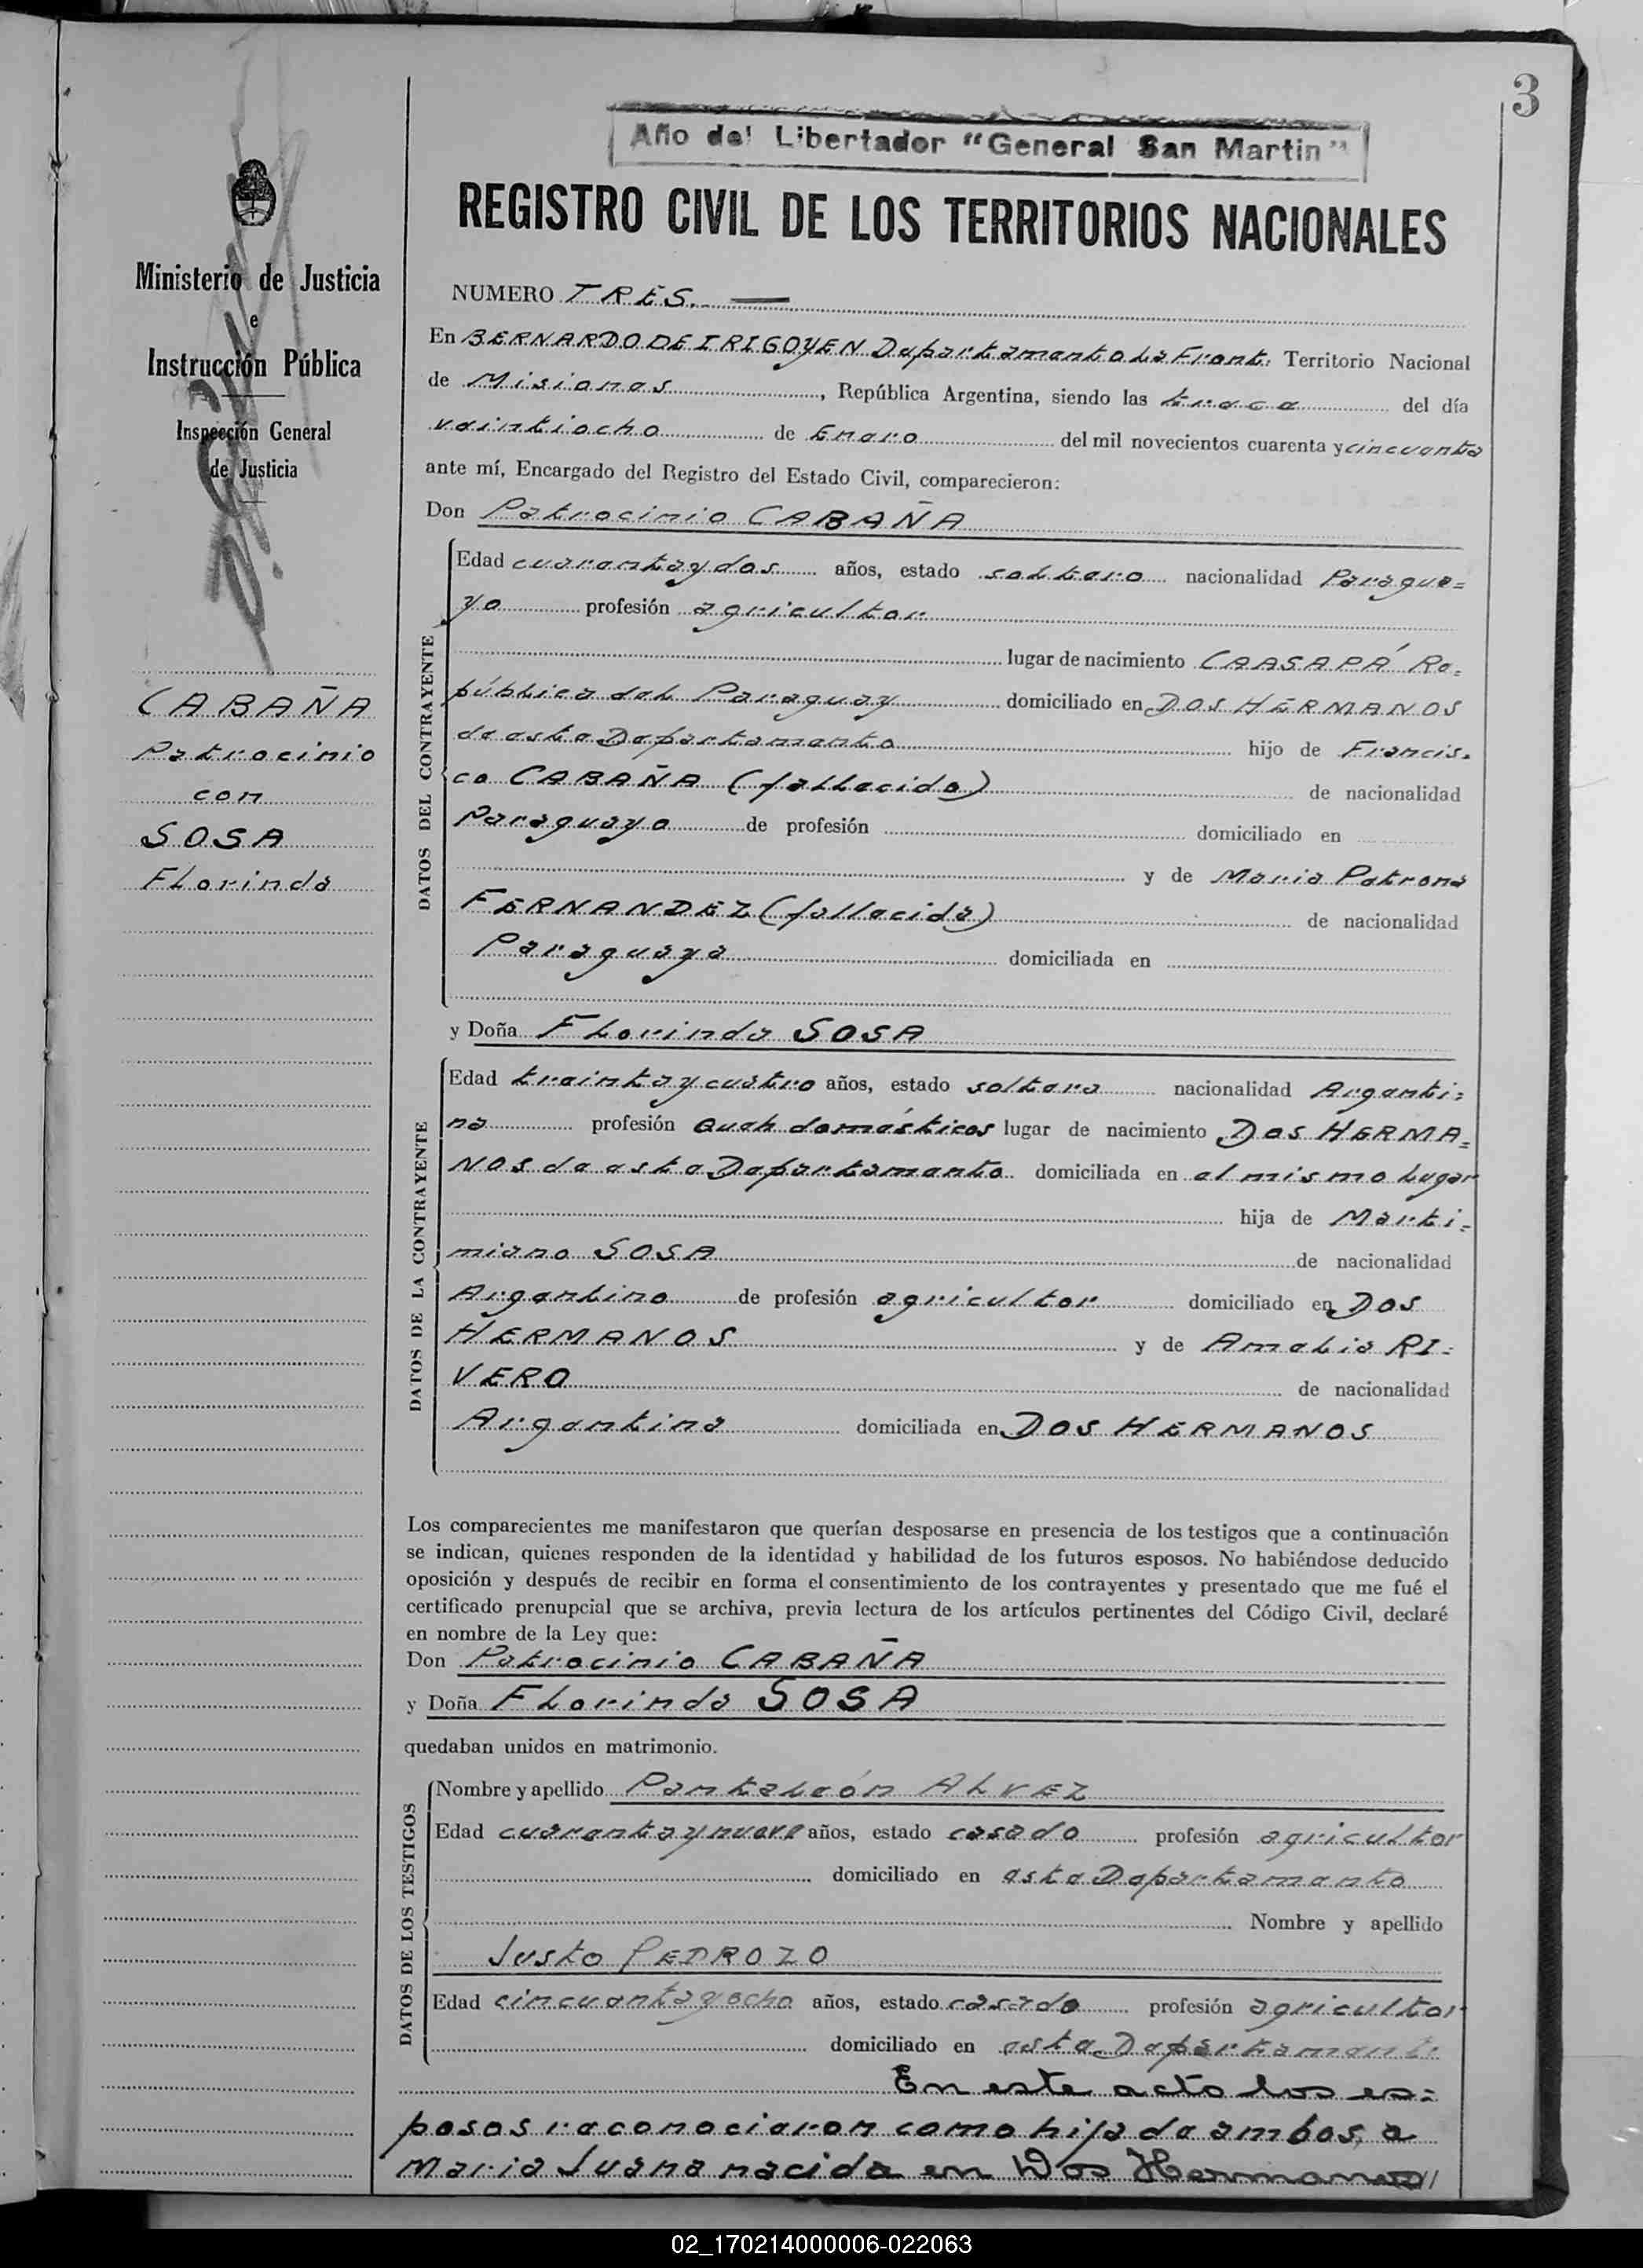 3
Año del Libertador "General San Martin"
REGISTRO CIVIL DE LOS TERRITORIOS NACIONALES
Ministerio de Justicia
e
Instrucción Pública
Inspección General
de Justicia
CABAÑA
Patrocinio
con
SOSA
Florinda
NUMERO TRES.
En BERNARDO DE IRIGOYEN Departamento La Front. Territorio Nacional
de Misiones, República Argentina, siendo las trece del día
veintiocho de Enero del mil novecientos cuarenta y cincuenta
ante mí, Encargado del Registro del Estado Civil, comparecieron:
Don Patrocinio CABAÑA
DATOS DEL CONTRAYENTE
Edad cuarenta y dos años, estado soltero nacionalidad Paragua=
yo profesión agricultor
lugar de nacimiento CAASAPÁ Re-
pública del Paraguay domiciliado en DOS HERMANOS
de este Departamento hijo de Francis-
co CABAÑA (fallecido) de nacionalidad
Paraguaya de profesión domiciliado en
y de Maria Petrona
FERNANDEZ (fallecida) de nacionalidad
Paraguaya domiciliada en
y Doña Florinda SOSA
DATOS DE LA CONTRAYENTE
Edad treinta y cuatro años, estado soltera nacionalidad Argenti=
na profesión Queh domésticos lugar de nacimiento Dos HERMA=
NOS de este Departamento domiciliada en el mismo lugar
hija de Marti-
miano SOSA de nacionalidad
Argentino de profesión agricultor domiciliado en DOS
HERMANOS y de Amalia RI-
VERO de nacionalidad
Argentina domiciliada en DOS HERMANOS
Los comparecientes me manifestaron que querían desposarse en presencia de los testigos que a continuación
se indican, quienes responden de la identidad y habilidad de los futuros esposos. No habiéndose deducido
oposición y después de recibir en forma el consentimiento de los contrayentes y presentado que me fué el
certificado prenupcial que se archiva, previa lectura de los artículos pertinentes del Código Civil, declaré
en nombre de la Ley que:
Don Patrocinio CABAÑA
y Doña Florinda SOSA
quedaban unidos en matrimonio.
DATOS DE LOS TESTIGOS
Nombre y apellido Pantaleón ALVEZ
Edad cuarenta y nueve años, estado casado profesión agricultor
domiciliado en este Departamento
Nombre y apellido
Justo PEDROZO
Edad cincuenta y ocho años, estado casado profesión agricultor
domiciliado en este Departamento
En este acto los es=
posos reconocieron como hija de ambos, a
Maria Juana nacida en Dos Hermanos//
02_170214000006-022063